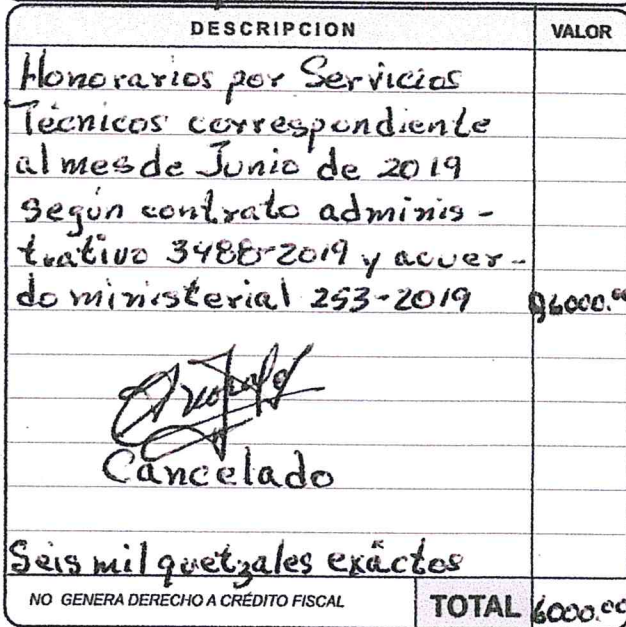 DESCRIPCION VALOR
Honorarios por Servicios
Técnicos correspondiente
al mes de Junio de 2019
Según contrato adminis-
trativo 3488-2019 y acuer-
do ministerial 253-2019 Q6000.00
Cancelado
Seis mil quetzales exáctos
NO GENERA DERECHO A CRÉDITO FISCAL TOTAL 6000.00